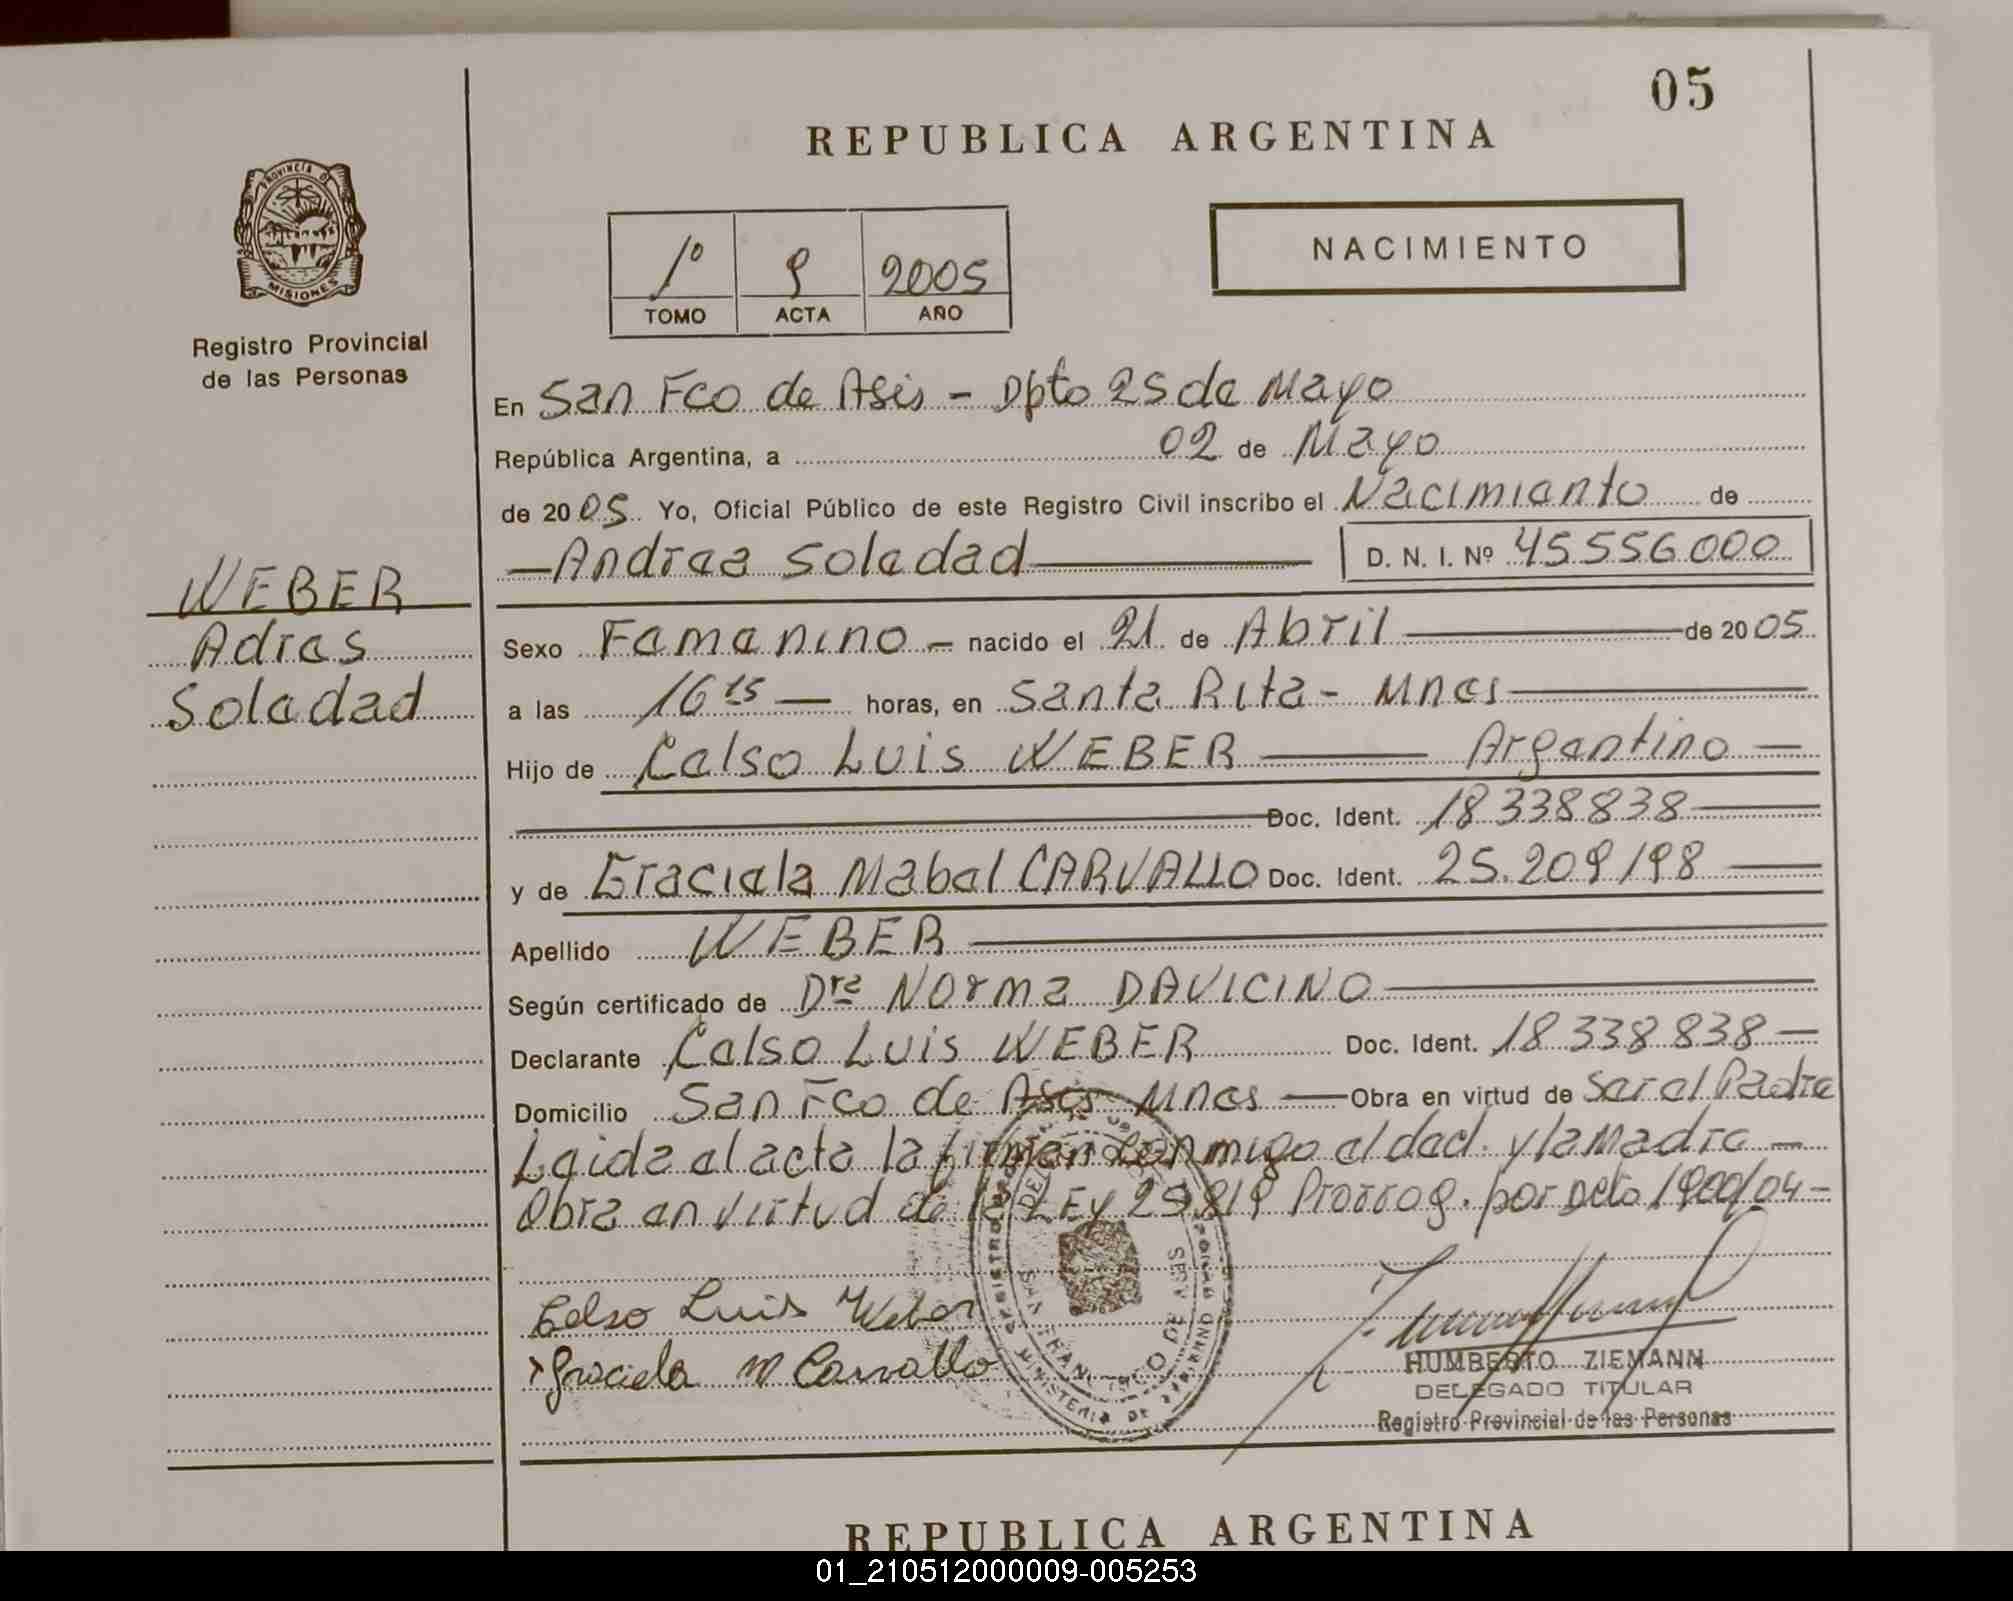 05
REPUBLICA ARGENTINA
PROVINCIA DE
MISIONES
Registro Provincial
de las Personas
1º 9 2005
TOMO ACTA AÑO
NACIMIENTO
En San Fco de Asis - Dpto 25 de Mayo
República Argentina, a 02 de Mayo
de 2005 Yo, Oficial Público de este Registro Civil inscribo el Nacimiento de
- Andrea Soledad - D. N. I. Nº 45.556.000
WEBER
Adrea
Soledad
Sexo Femenino - nacido el 21 de Abril de 2005
a las 16 15 - horas, en Santa Rita - Mnes
Hijo de Celso Luis WEBER - Argentino -
Doc. Ident. 18.338.838
y de Graciela Mabel CARVALLO Doc. Ident. 25.209.198
Apellido WEBER
Según certificado de Dra Norma DAVICINO
Declarante Celso Luis WEBER Doc. Ident. 18.338.838 -
Domicilio San Fco de Asis Mnes - Obra en virtud de Ser el Padre
Leida el acta la firman conmigo el decl. y la Madre -
Obra en virtud de la LEy 25.819 Prorrog. por Dcto 1900/04 -
Celso Luis Weber
Graciela M Carvallo
SAN FRANCISCO DE ASIS
MINISTERIO DE
HUMBERTO ZIEMANN
DELEGADO TITULAR
Registro Provincial de las Personas
REPUBLICA ARGENTINA
01_210512000009-005253